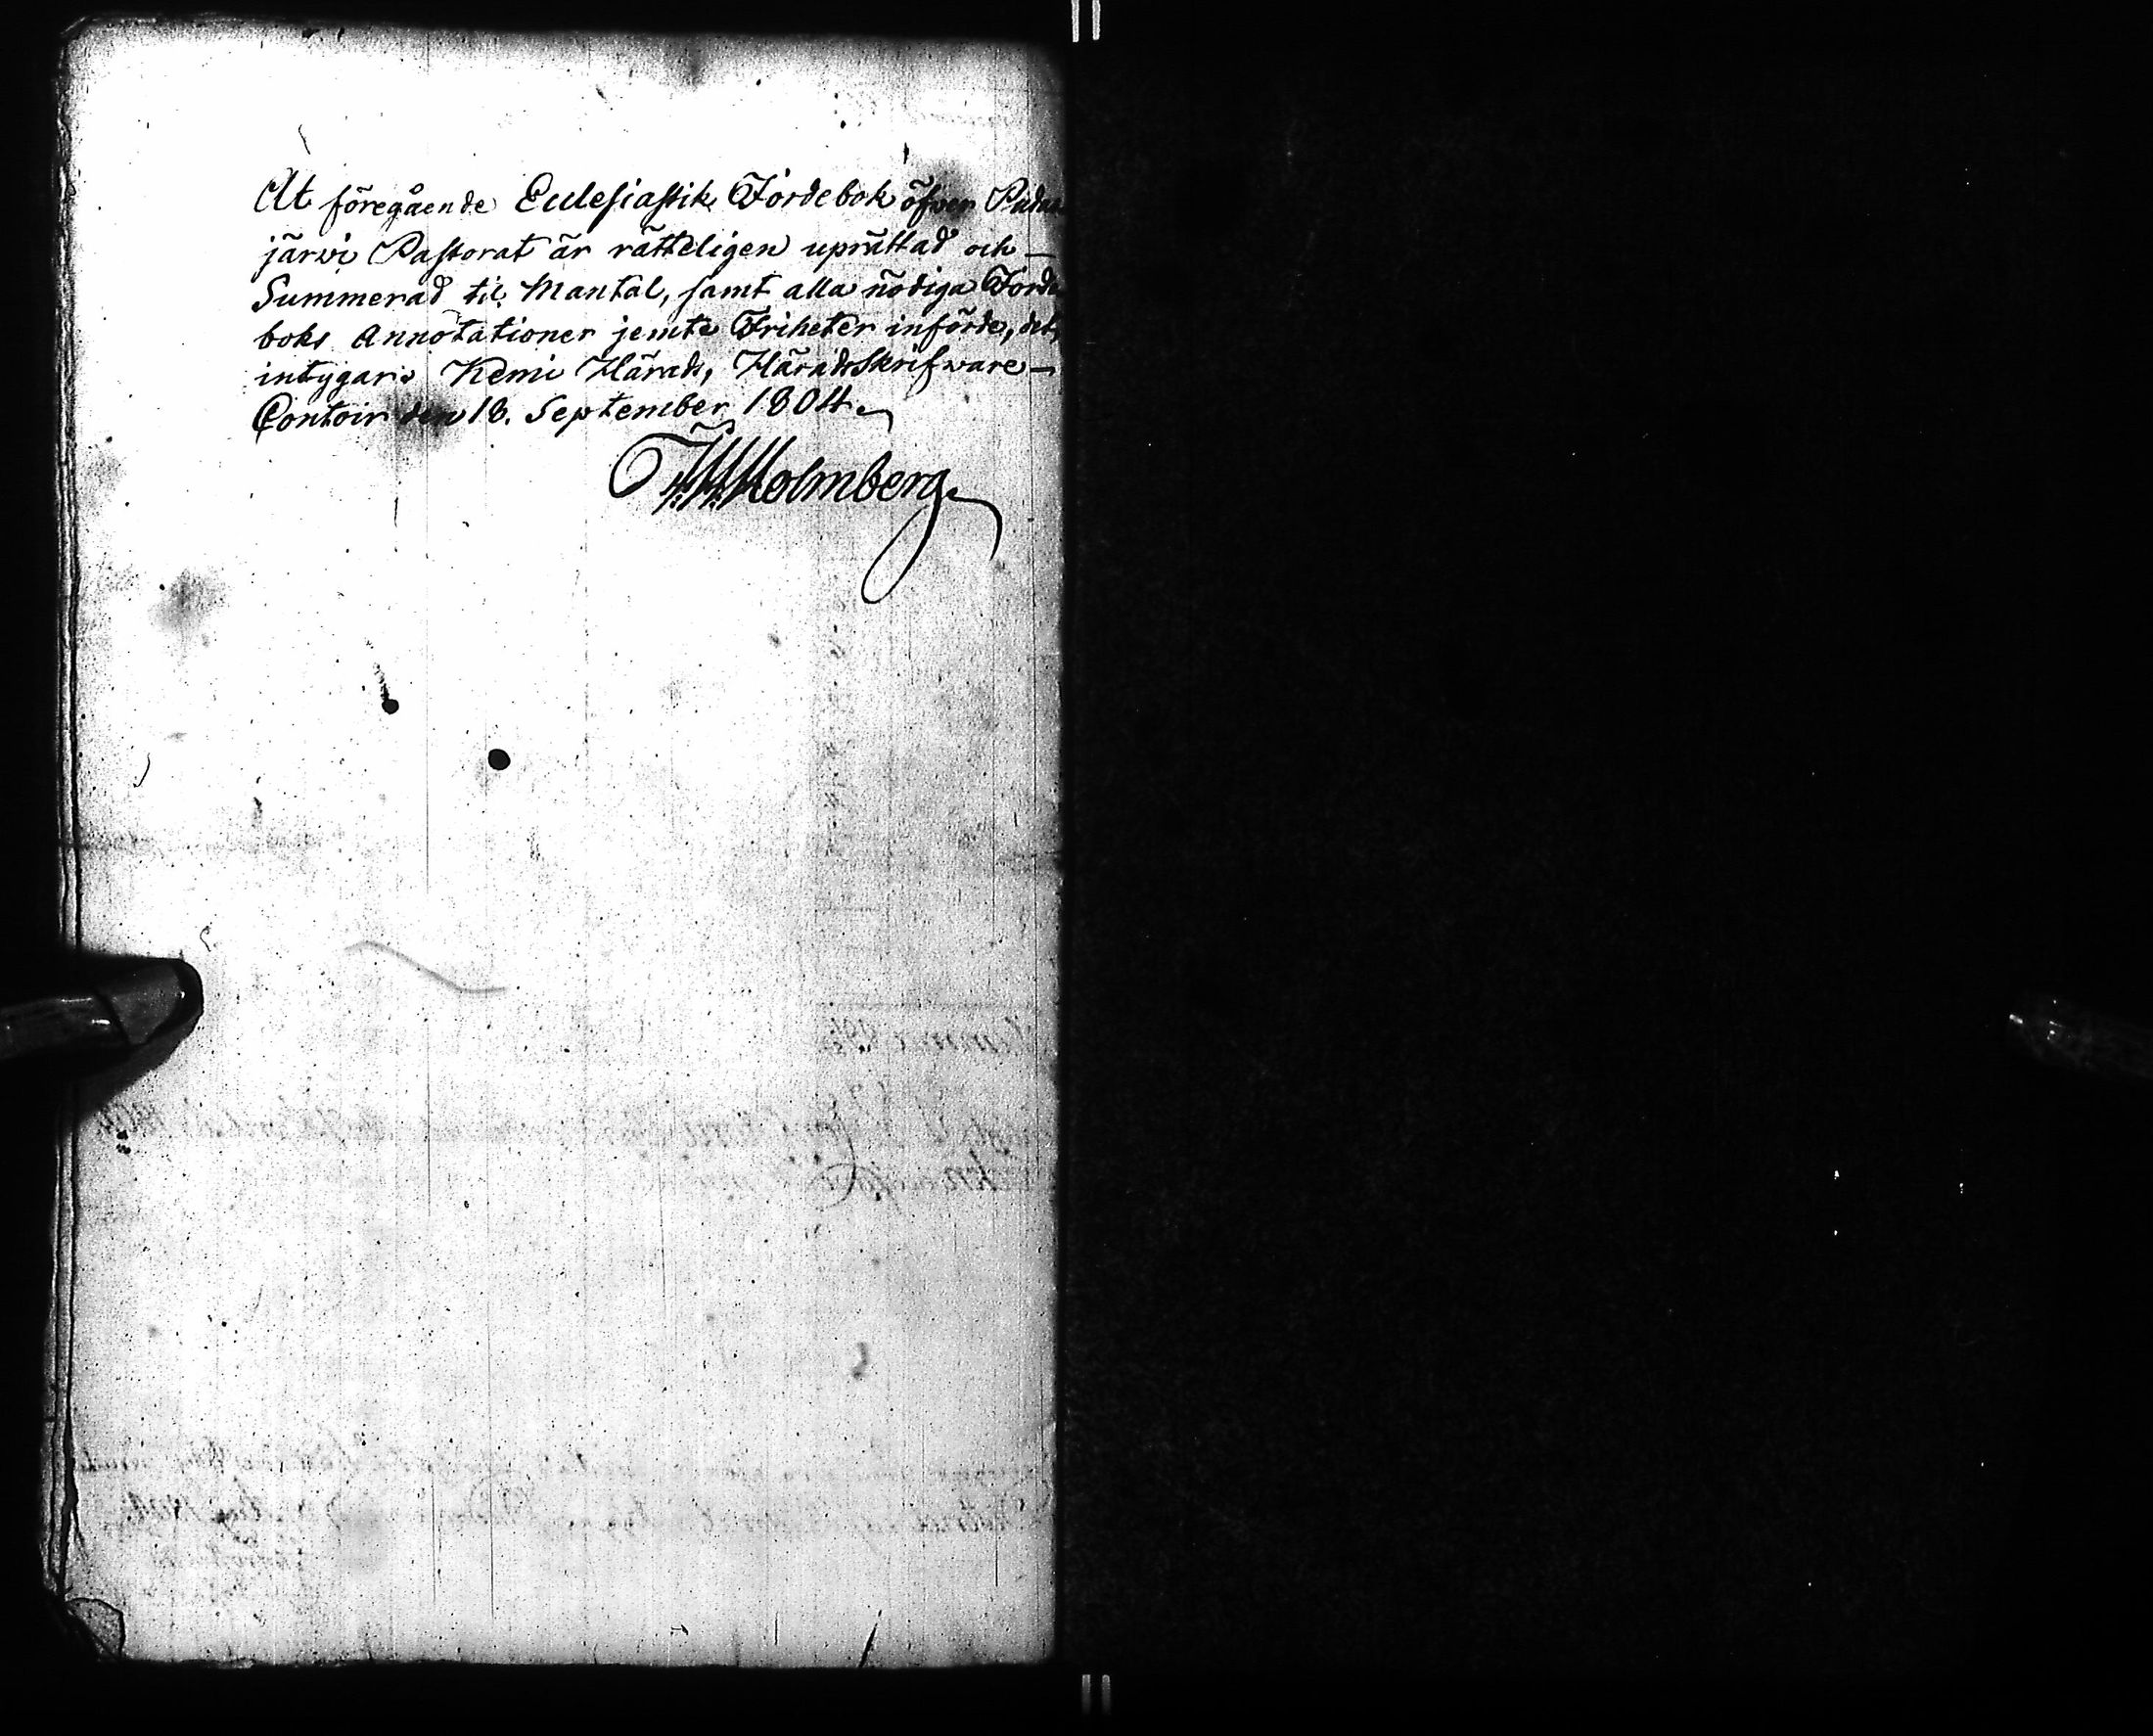 At föregående Ecclesiastik Jordebok öfwer Pudas
järwi Pastorat är rätteligen uprättad och —
Summerad til Mantal, samt alla nödiga Jorde
boks Annotationer jemte Friheter införde, det,
intygar Kemi Härads, Häradsskrifware —
Contoir den 18. September 1804.
Holmberg